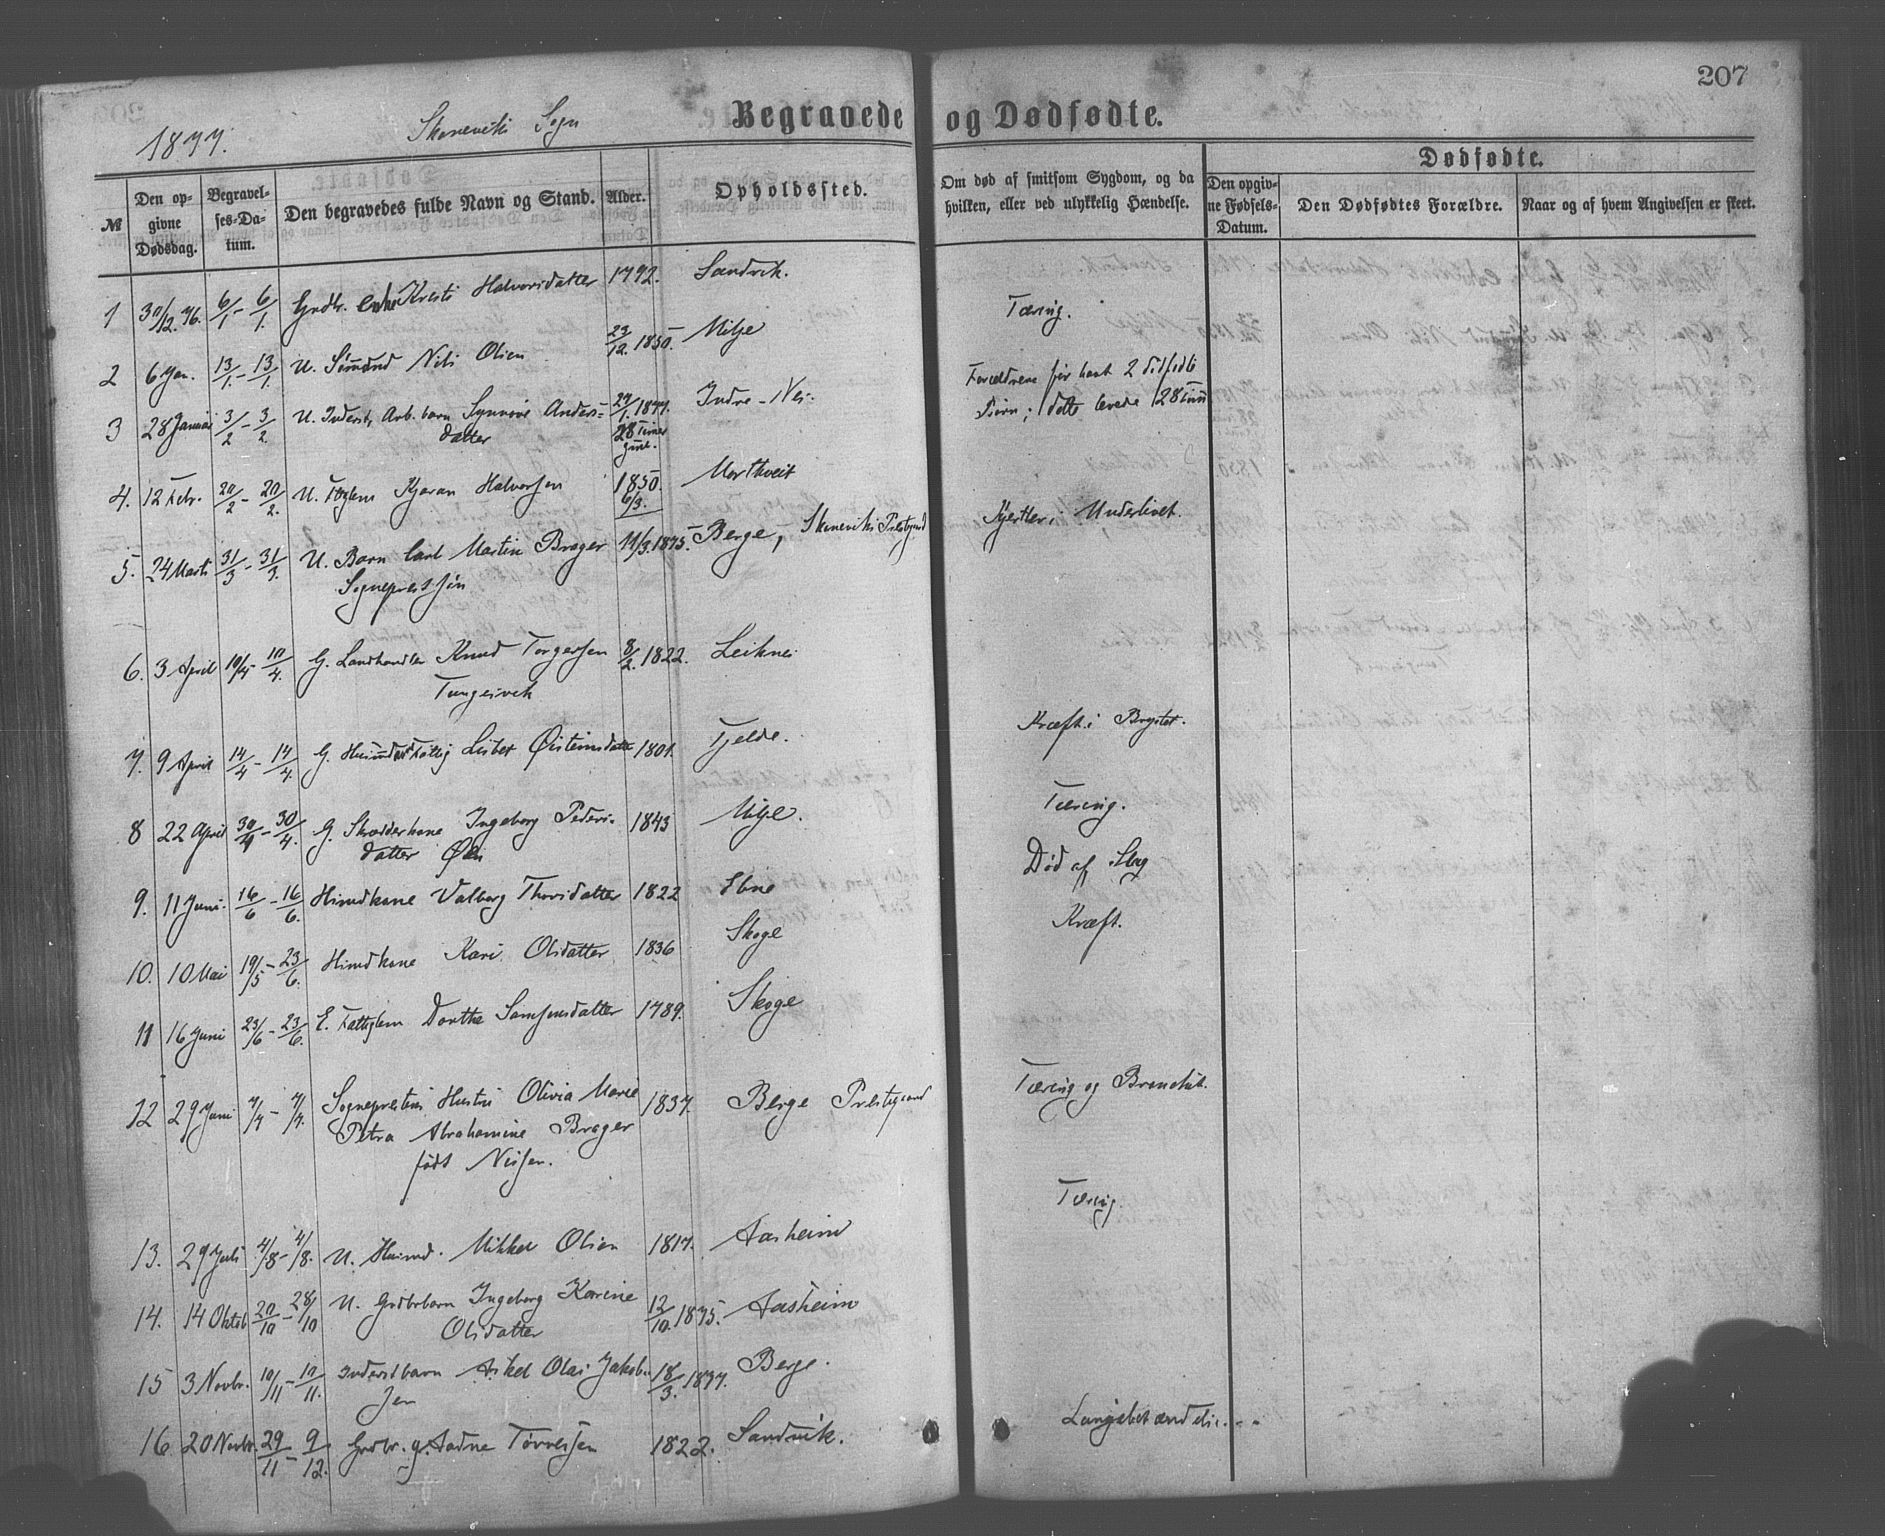 207
1877.
Skoneviks Sogn
Begravede og Dødfødte.
№
Den opgivne Dødsdag.
Begravelses-Datum.
Den begravedes fulde Navn og Stand.
Alder.
Opholdssted.
Om død af smitsom Sygdom, og da hvilken, eller ved ulykkelig Hændelse.
Dødfødte.
Den opgivne Fødsels-Datum.
Den Dødfødtes Forældre.
Naar og af hvem Angivelsen er skeet.
1 30/12.76. 6/1 - 6/1. Grdbr. enke Kristi Halvorsdatter 1792. Sandvik.
Tæring.
2 6 Jan. 13/1. - 13/1. U. Sømand Nils Olsen 23/12. 1850. Milje
3 28 Januar 3/2 - 3/2. U. Inderst, Arb. barn Synnøve Anders- 27/1. 1877. Indre-Nes.
datter 28 Timer gml.
Forældrene før havt 2 dødfødte
Børn; dette levede 28 Timer
4. 12 Febr. 20/2 - 20/2. U. Kjaran Halvorsen 1850. 6/3. Morkveit
Kjertler i Underlivet.
5. 24 Marts 31/3 - 31/3. U. Barn Carl Martin Brager 11/3.1875. Berge, Skoneviks Prestgaard
Sogneprestsøn
6. 3 April 10/4 - 10/4. G. Landhandler Knud Torgersen 8/2. 1822. Leiknes
Tungesvik
Kræft i Brystet.
7. 9 April 14/4 - 14/4. G. Lisbet Østeinsdatter 1801. Tjelde.
Tæring.
8 22 April 30/4 - 30/4. G. Skrædderkone Ingeborg Peders- 1843 Milje.
datter Øen
Død af Slag
9. 11 Juni. 16/6 - 16/6. Husmdkone Valborg Thorsdatter 1822 Ebne
Kræft.
10. 10 Mai 19/5 - 23/6. Husmdkone Kari Olsdatter 1836 Skoge
11 16 Juni 23/6 - 23/6. E. Fattiglem Dorthe Samsonsdatter 1789. Skoge
12 29 Juni 7/7 - 7/7. Sogneprestens Hustru Olivia Marie 1837. Berge Prestegaard
Petra Abrahamine Brager
født Nissen.
Tæring og Bronchit.
Tæring.
13. 29 Juli 4/8 - 4/8. U. Husmd. Mikkel Olsen 1817. Aasheim
14. 14 Oktob 20/10 - 28/10 U. Grdbrbarn Ingeborg Karine 12/10. 1875. Aasheim
Olsdatter
15 3 Novbr. 10/11 - 10/11. Inderstbarn Askel Olai Jakob- 18/3. 1877. Berge.
sen
16 20 Novbr. 29/11 - 9/12. Grdbr. g. Aadne Torvesen 1822. Sandvik.
Lungebetændelse.